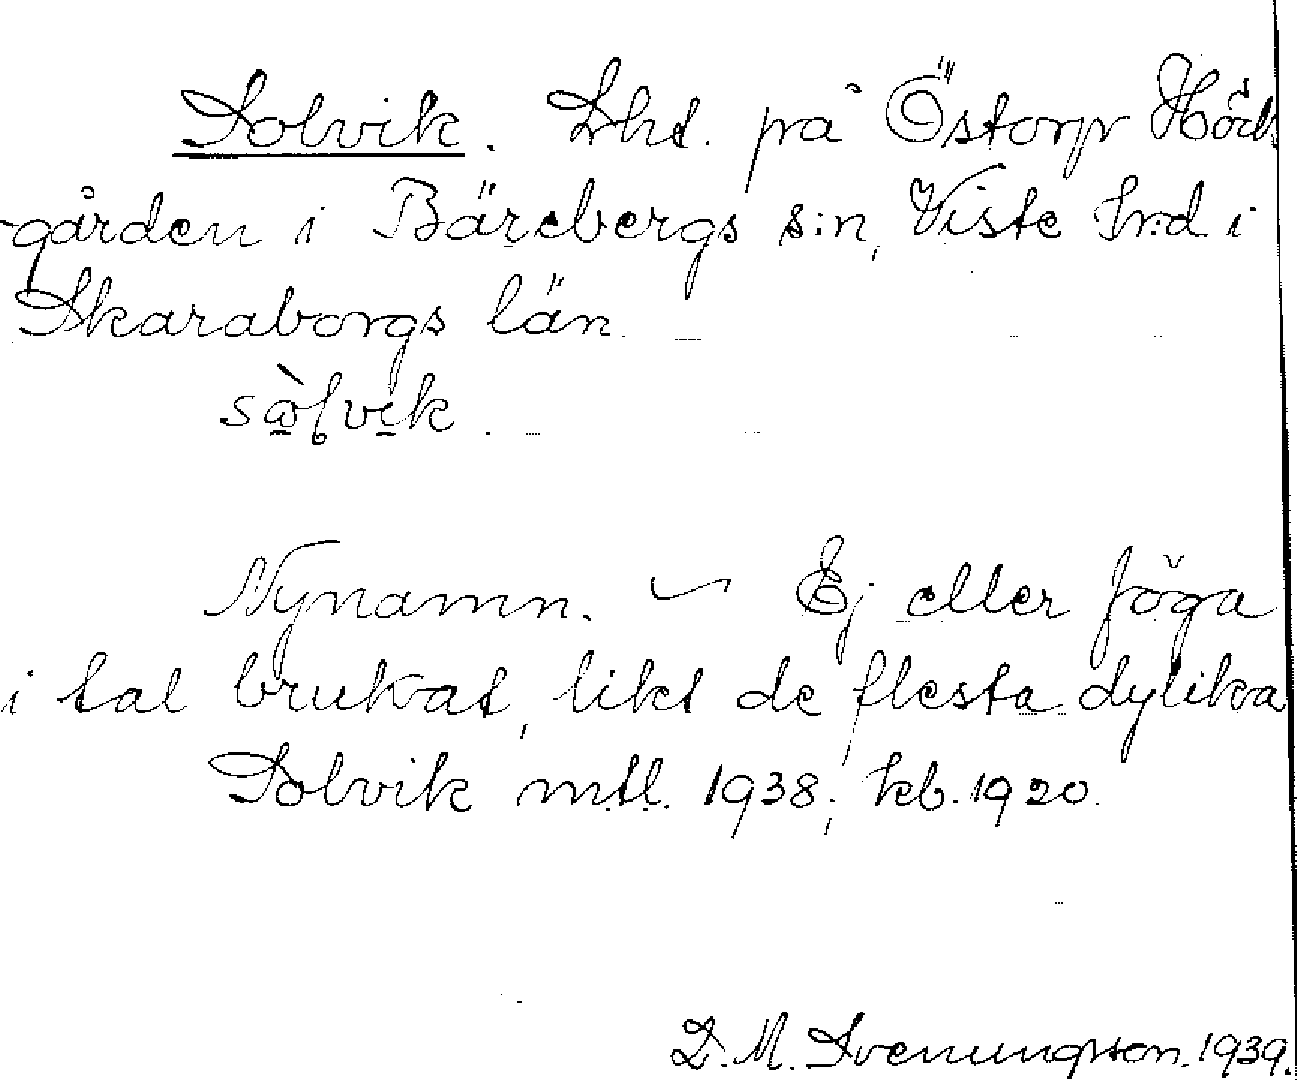 Solvik. Lht. på Östorp Höck
-gården i Bärebergs s:n, Viste hrd i
Skaraborgs län
sòlvik.
Nynamn. ~ Ej eller föga
i tal brukat, likt de flesta dylika
Solvik mtl. 1938; kb. 1920.
D. M. Svenungsson. 1939.